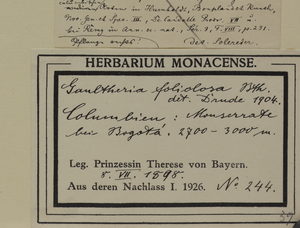 Arten in Humboldt, Bonpland et Kunth,
Nov. gen. et Spec. III, De Candolle Prodr. VII u.
bei King in Ann. sc. nat., Sér. 3, T. VIII, p. 231.
det. Solereder.
HERBARIUM MONACENSE.
Gaultheria foliolosa Bth.
det. Drude 1904.
Columbien: Monserrate
bei Bogotá. 2700-3000 m.
Leg. Prinzessin Therese von Bayern.
8. VII. 1898.
Aus deren Nachlass I. 1926. No 244.